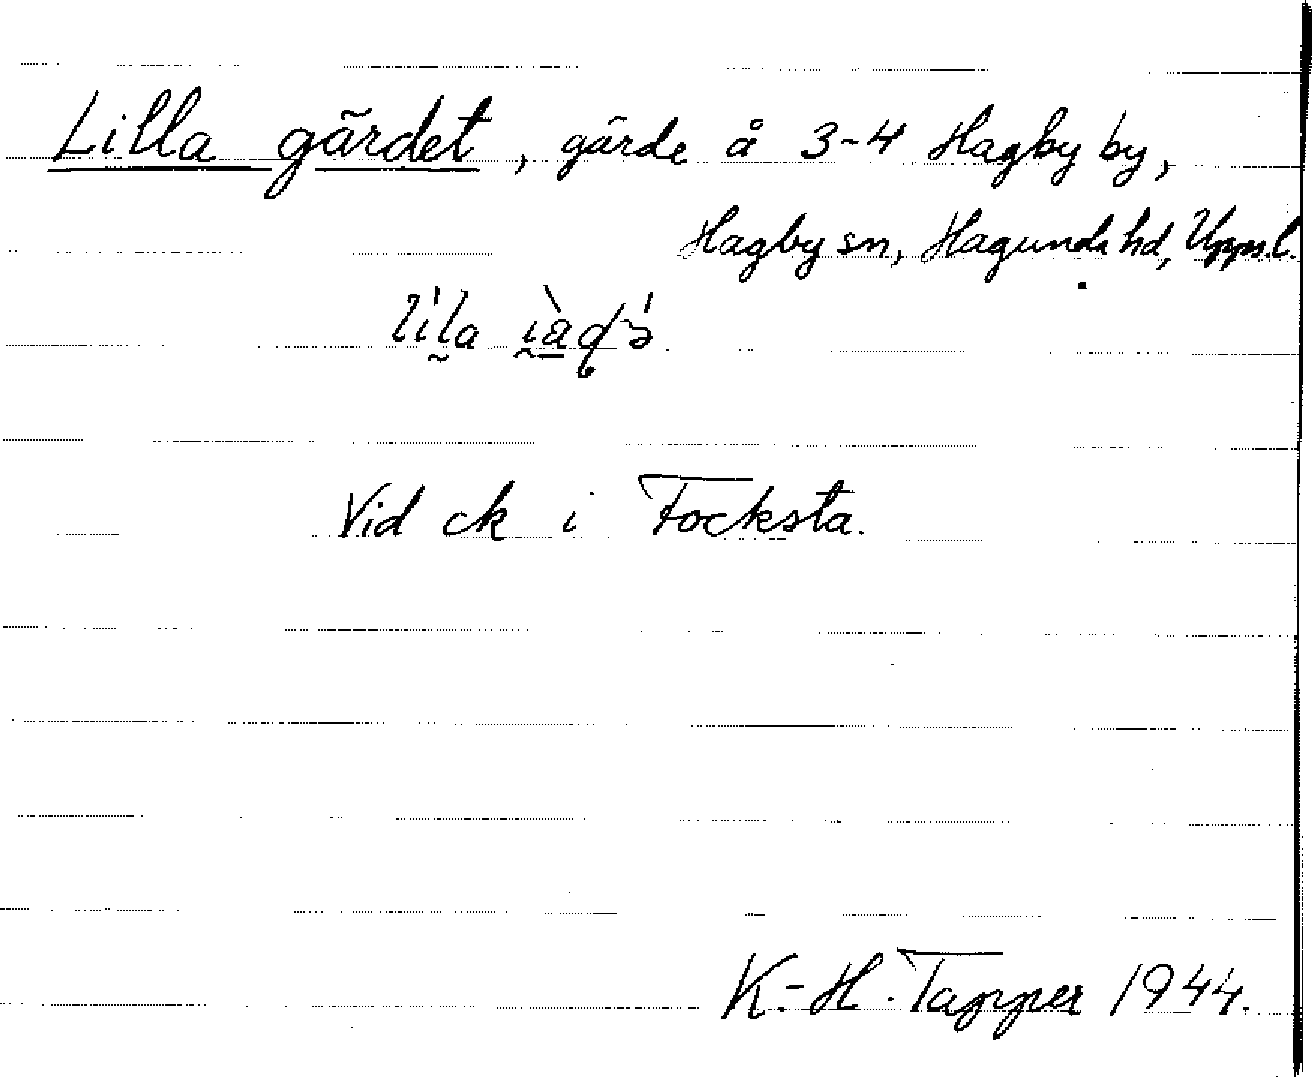 Lilla gärdet, gärde å 3-4 Hagby by,
Hagby sn, Hagunda hd, Upps.l.
Vid ck i Focksta.
K.-H. Tapper 1944.